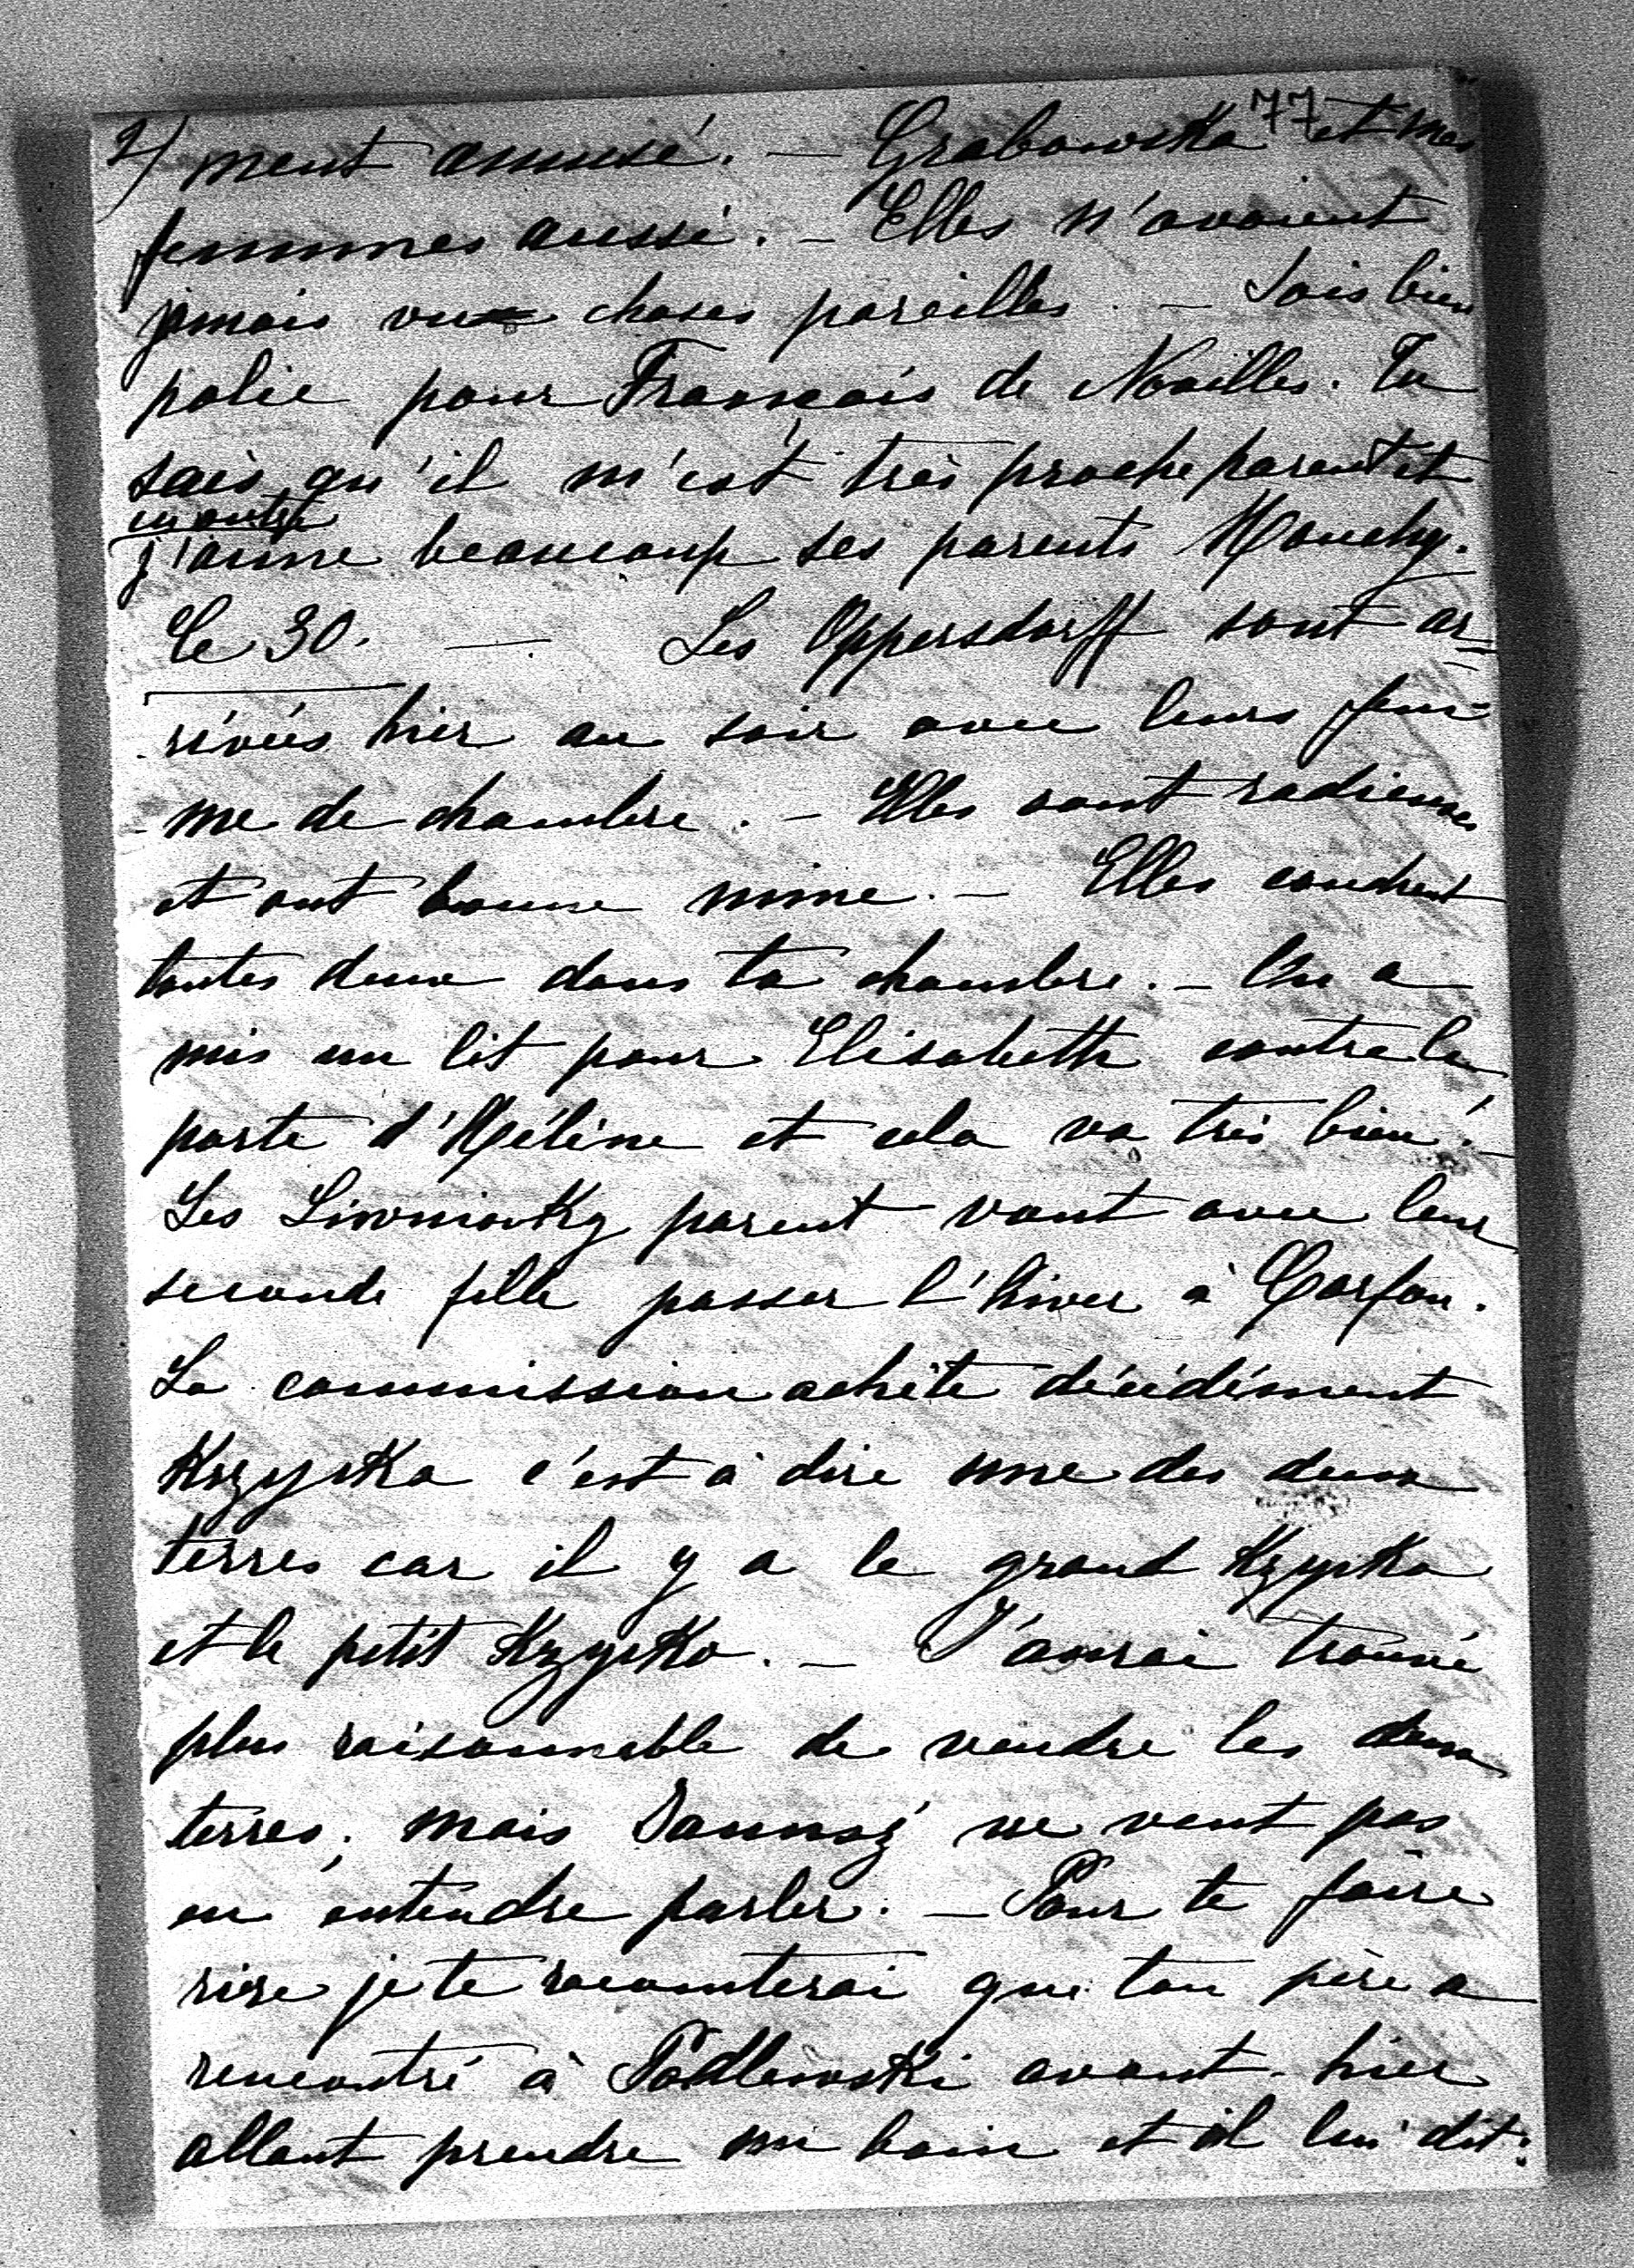 2/ ment amusé. — Grabowska 77 et mes
femmes aussi. — Elles n'avaient
jamais vu choses pareilles. — Sois bien
polie pour François de Noailles. Tu
sais qu'il m'est très proche parent et
en outre
j'aime beaucoup ses parents Mouchy.
Le 30. — Les Oppersdorff sont ar=
rivées hier au soir avec leurs fem=
me de chambre. — Elles sont radieuses
et ont bonne mine. — Elles couchent
toutes deux dans ta chambre. — On a
mis un lit pour Elisabeth contre la
porte d'Hélène et cela va très bien. —
Les parent vont avec leur
seconde fille passer l'hiver à Corfou.
La commission achète décidément
Krzycko c'est à dire une des deux
terres car il y a le grand Kzycko
et le petit Kzycko. — J'aurai trouvé
plus raisonnable de vendre les deux
terres, mais ne veut pas
en entendre parler. — Pour te faire
rire je te raconterai que ton père a
rencontré à Podlewski avant-hier
allant prendre un bain et il lui dit: